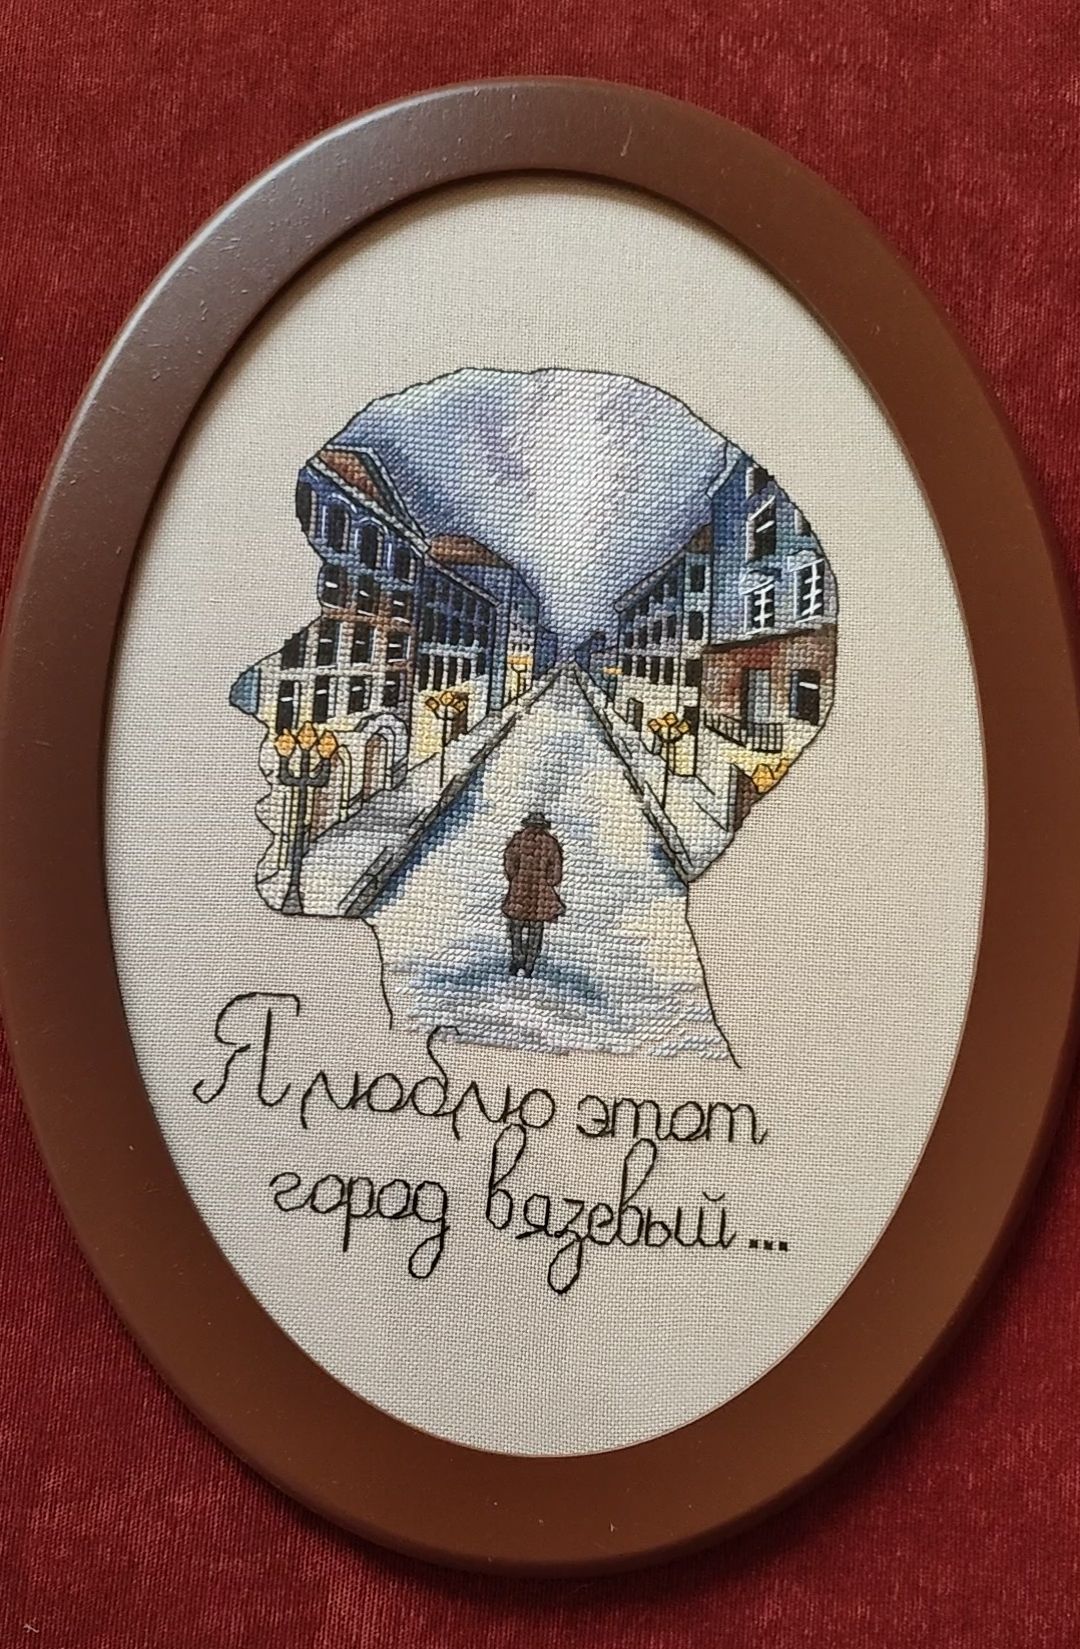 Я люблю этот
город вязевый...